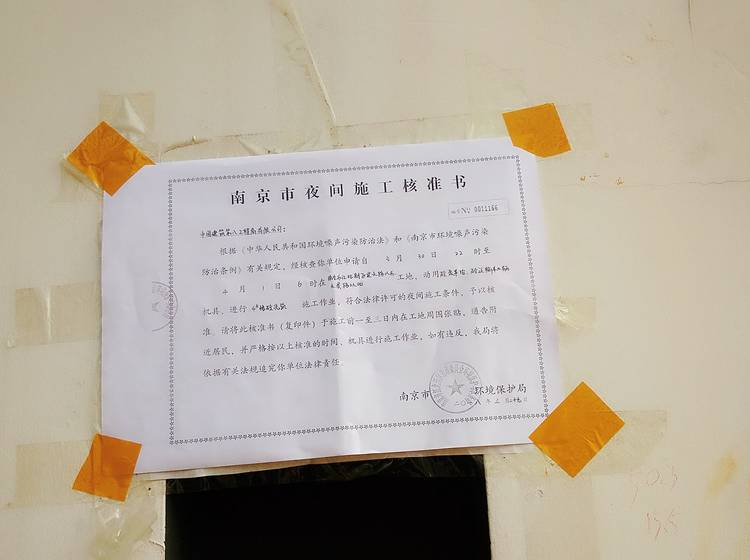 南京市夜间施工核准书
No 0011166
中国建筑第八工程局有限公司:
根据《中华人民共和国环境噪声污染防治法》和《南京市环境噪声污染
防治条例》有关规定,经核查你单位申请自 月 30 日 22 时至
4 月 1 日 6 时在 工地,动用
机具,进行 施工作业,符合法律许可的夜间施工条件,予以核
准。请将此核准书(复印件)于施工前一至三日内在工地周围张贴,通告附
近居民,并严格按以上核准的时间、机具进行施工作业,如有违反,我局将
依据有关法规追究你单位法律责任。
南京市 环境保护局
年 月 日